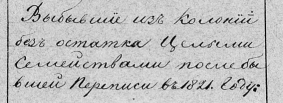 Выбывшіе изъ колоній
безъ остатка Целыми
Семействами после бы
вшей Переписи въ 1821. Году: